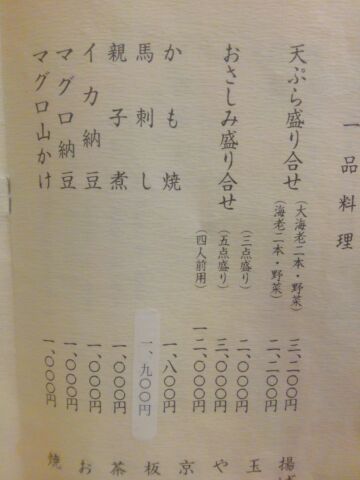 一品料理
天ぷら盛り合せ
(大海老二本・野菜) 三、二〇〇円
(海老二本・野菜) 二、二〇〇円
おさしみ盛り合せ
(三点盛り) 二、〇〇〇円
(五点盛り) 三、〇〇〇円
(四人前用) 一二、〇〇〇円
かも焼 一、八〇〇円
馬刺し 一、九〇〇円
親子煮 一、〇〇〇円
イカ納豆 一、〇〇〇円
マグロ納豆 一、〇〇〇円
マグロ山かけ 一、〇〇〇円
揚げ
玉
や
京
板
茶
お
焼